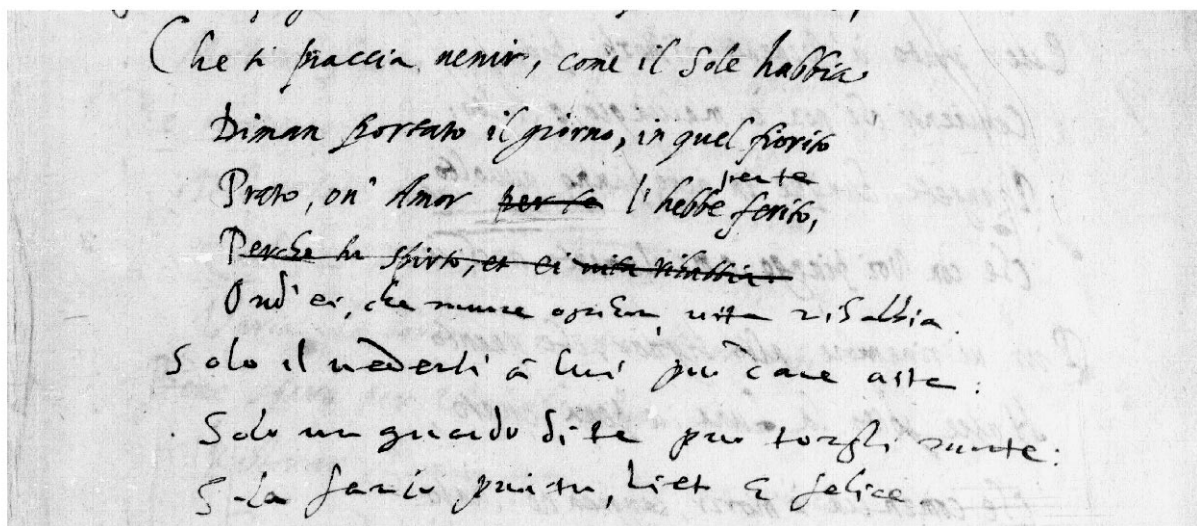 Che ti piaccia uenir, come il Sole habbia
Diman portato il giorno, in quel fiorito
Prato, ou' Amor per te l'hebbe per te ferito,
Perche lu spirto, et ei uita rihabbia.
Ond' ei, che more ogn'hora, uita rihabbia.
Solo il uederti à lui può dare aita:
Solo un guardo di te può torgli morte:
Sola farlo puoi tu, liet e felice